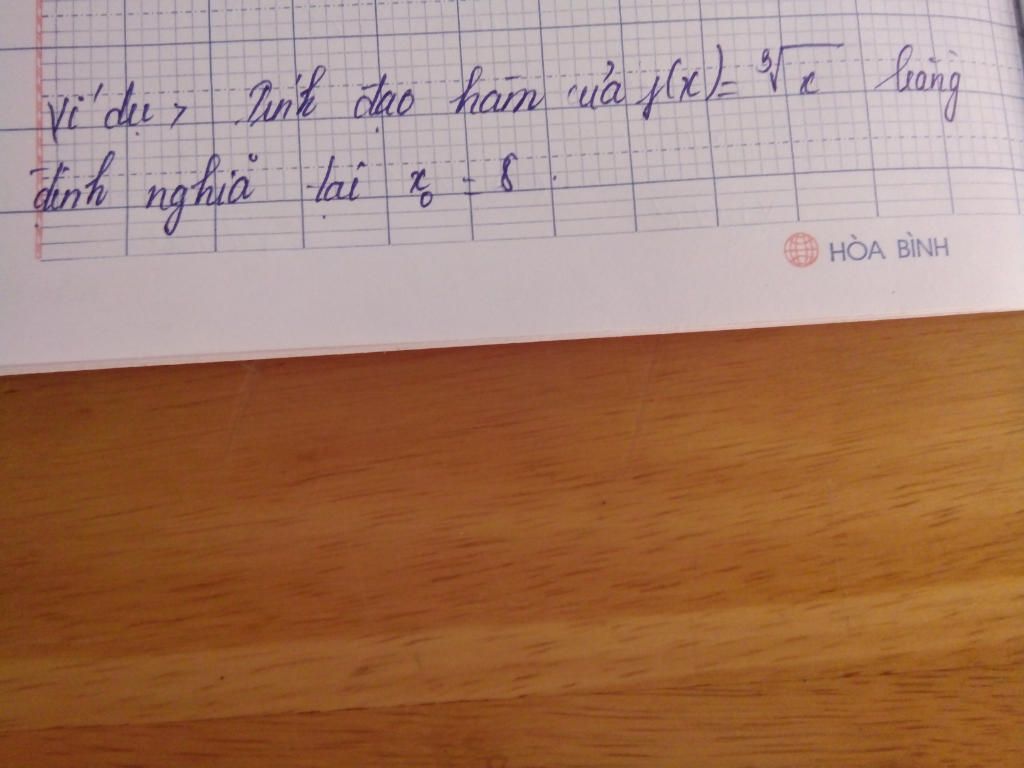 Ví dụ > Tính đạo hàm của f(x) = ∛x bằng
định nghĩa tại x₀ = 8.
HÒA BÌNH